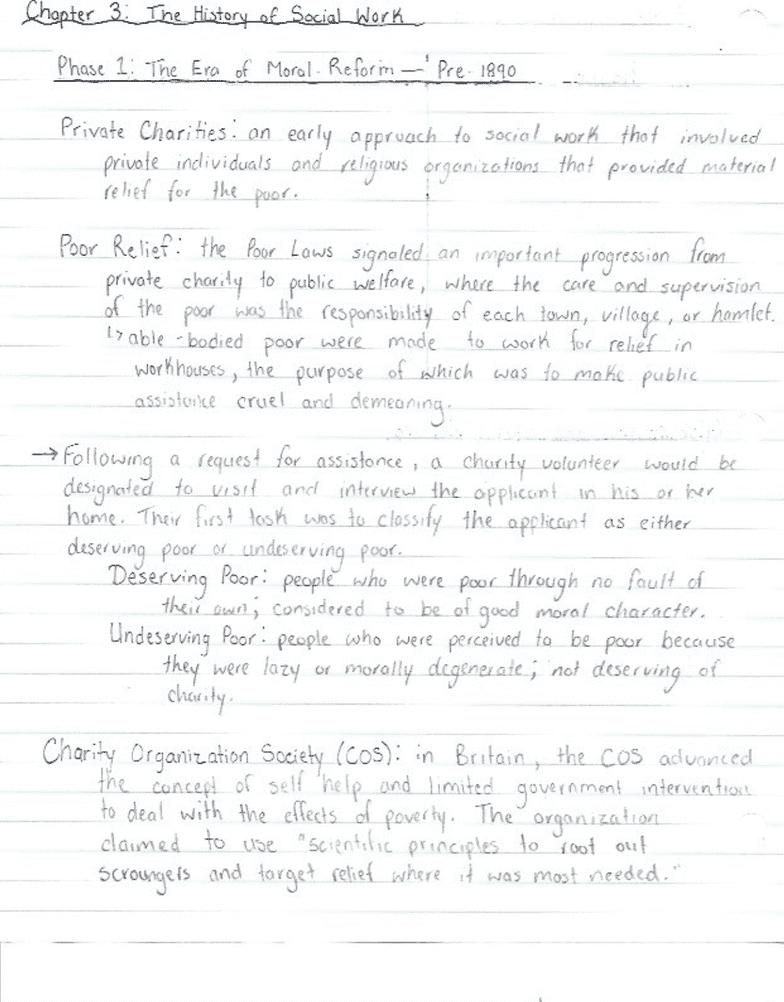 Chapter 3: The History of Social Work
Phase 1: The Era of Moral Reform — Pre-1890
Private Charities: an early approach to social work that involved
private individuals and religious organizations that provided material
relief for the poor.
Poor Relief: the Poor Laws signaled an important progression from
private charity to public welfare, where the care and supervision
of the poor was the responsibility of each town, village, or hamlet.
↳ able-bodied poor were made to work for relief in
workhouses, the purpose of which was to make public
assistance cruel and demeaning.
→ Following a request for assistance, a charity volunteer would be
designated to visit and interview the applicant in his or her
home. Their first task was to classify the applicant as either
deserving poor or undeserving poor.
Deserving Poor: people who were poor through no fault of
their own; considered to be of good moral character.
Undeserving Poor: people who were perceived to be poor because
they were lazy or morally degenerate; not deserving of
charity.
Charity Organization Society (COS): in Britain, the COS advanced
the concept of self help and limited government intervention
to deal with the effects of poverty. The organization
claimed to use "scientific principles to root out
scroungers and target relief where it was most needed."